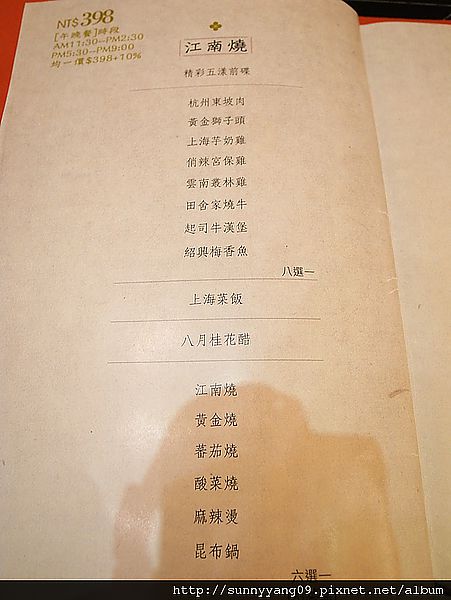 NT$398
[午晚餐]時段
AM11:30--PM2:30
PM5:30--PM9:00
均一價$398+10%
江南燒
精彩五漾前碟
杭州東坡肉
黃金獅子頭
上海芋奶雞
俏辣宮保雞
雲南叢林雞
田舍家燒牛
起司牛漢堡
紹興梅香魚
八選一
上海菜飯
八月桂花醋
江南燒
黃金燒
蕃茄燒
酸菜燒
麻辣燙
昆布鍋
六選一
http://sunnyyang09.pixnet.net/album